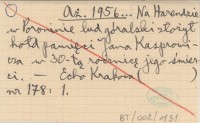 Aż. 1956... Na Harendzie
w Poroninie lud góralski złożył
hołd pamięci Jana Kasprowi-
cza w 30-tą rocznicę jego śmier-
ci. — Echo Krakowa (      )
nr 178: 1.
BT/002/1131